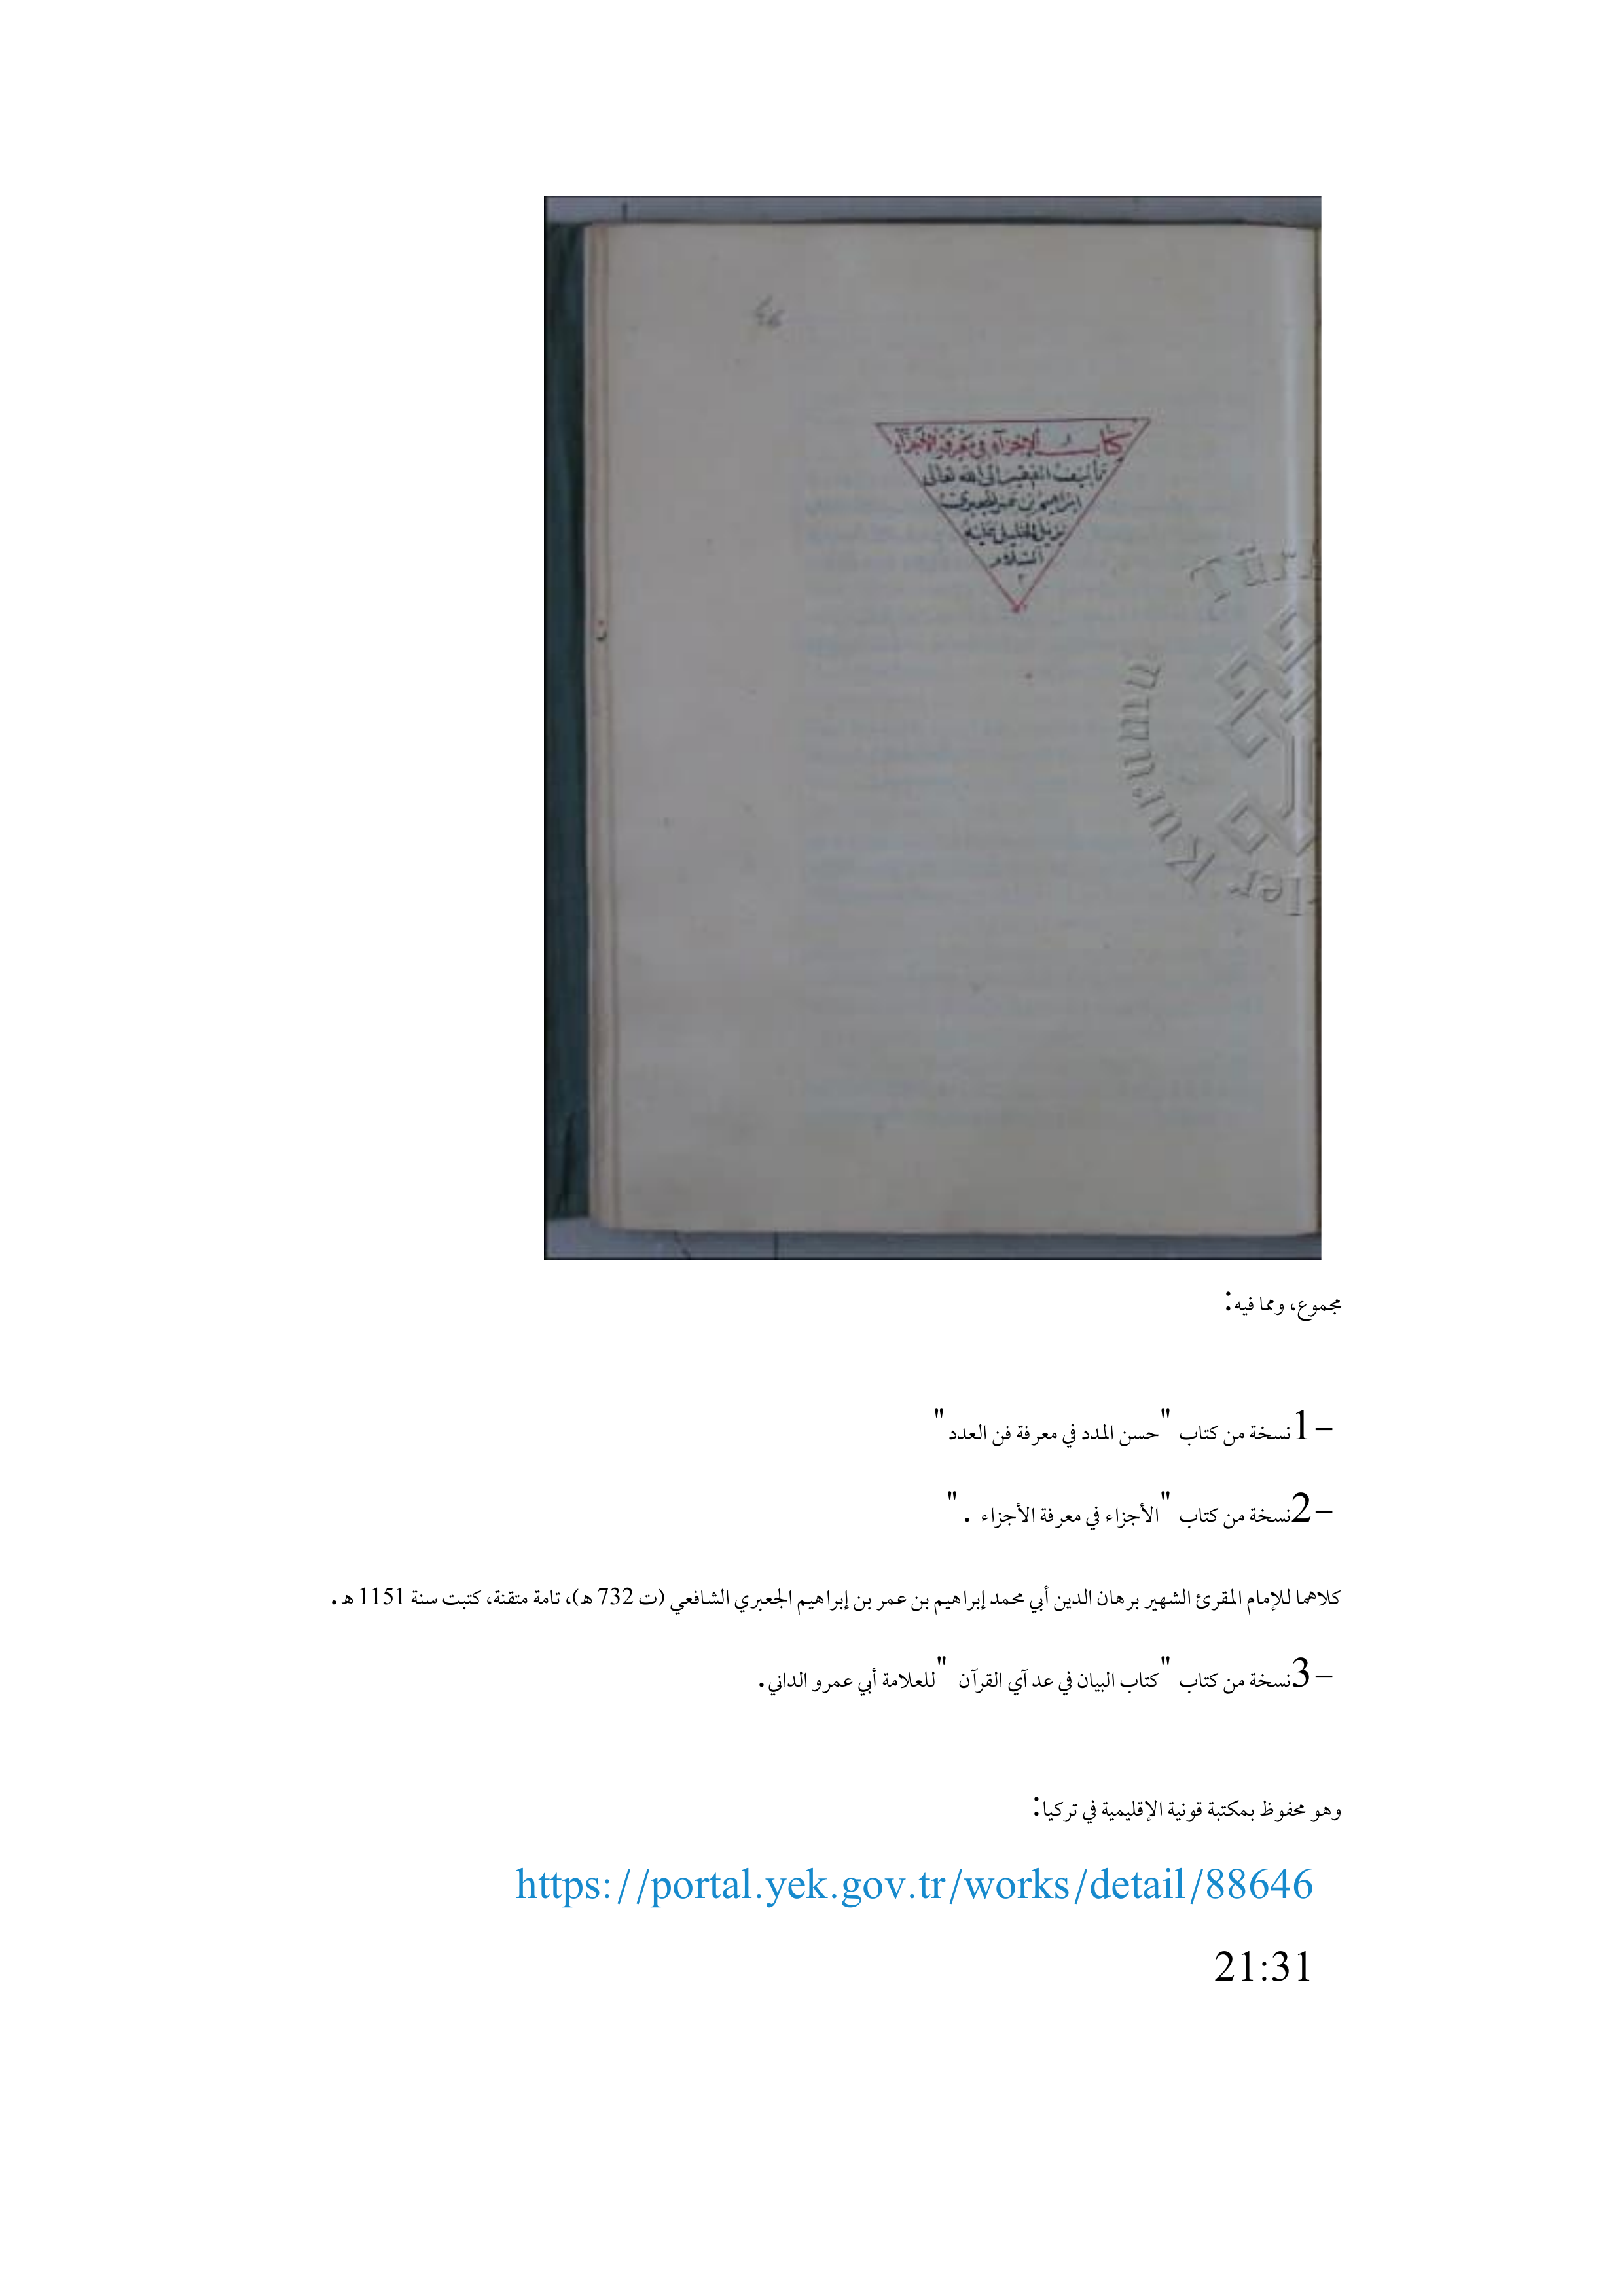 كتاب الإجزاء في معرفة الأجزاء
تأليف الفقير الى الله تعالى
ابراهيم بن عمر الجعبري
نزيل الخليل عليه
السلام
ler Kurumu
مجموع، ومما فيه:
1– نسخة من كتاب "حسن المدد في معرفة فن العدد"
2– نسخة من كتاب "الأجزاء في معرفة الأجزاء ."
كلاهما للإمام المقرئ الشهير برهان الدين أبي محمد إبراهيم بن عمر بن إبراهيم الجعبري الشافعي (ت 732 هـ)، تامة متقنة، كتبت سنة 1151 هـ.
3– نسخة من كتاب "كتاب البيان في عد آي القرآن "للعلامة أبي عمرو الداني.
وهو محفوظ بمكتبة قونية الإقليمية في تركيا:
https://portal.yek.gov.tr/works/detail/88646
21:31